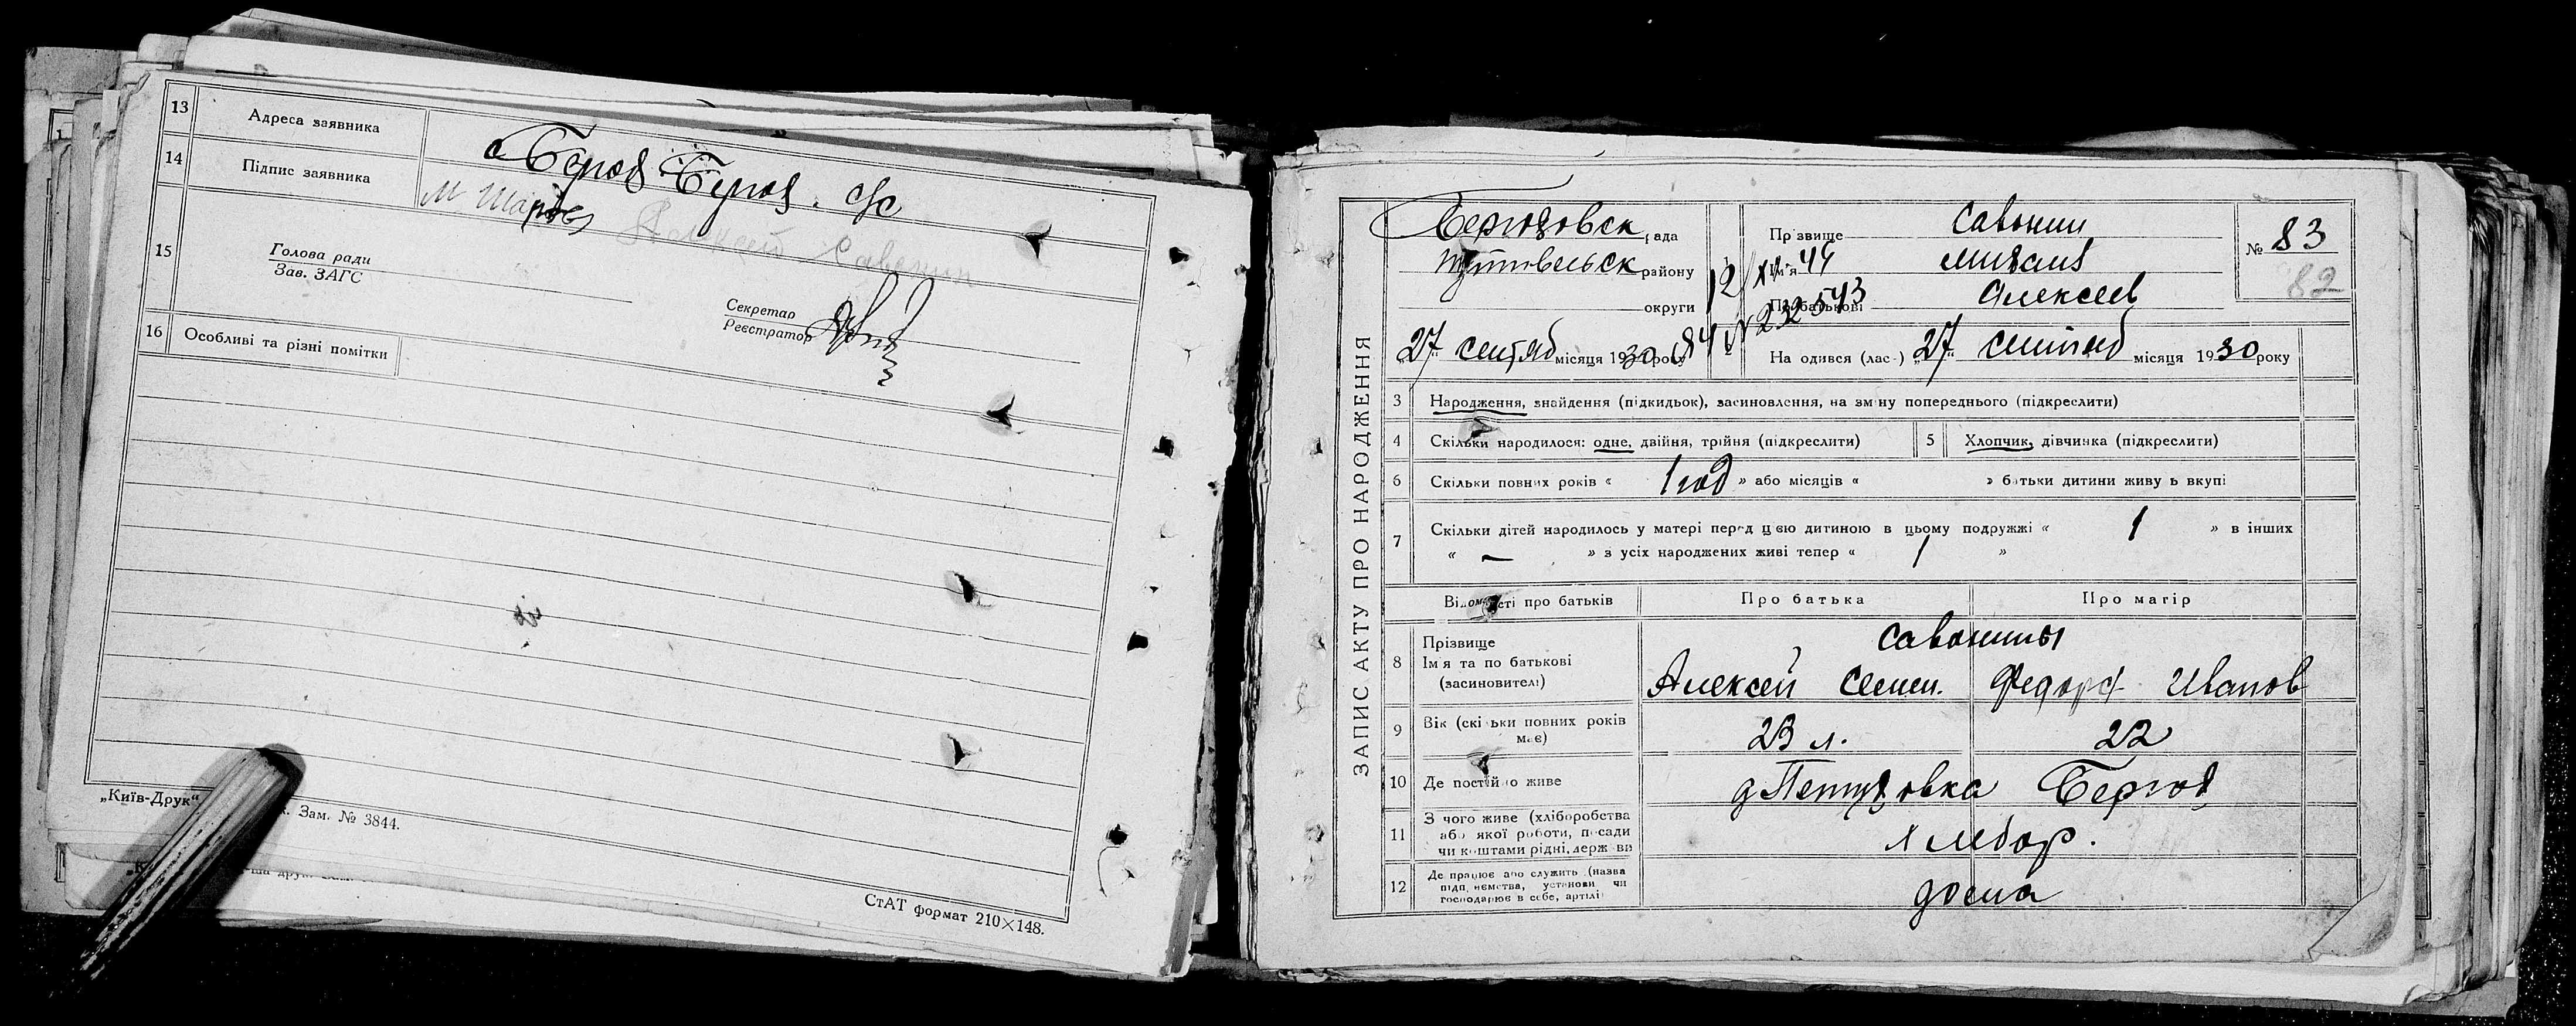 13 Адреса заявника
14 Підпис заявника
М Шаров Алексей Савонин
15 Голова ради
Зав. ЗАГС
Секретар
Реєстратор
16 Особливі та різні помітки
„Київ-Друк“
Зам. № 3844.
СтАТ формат 210×148.
ЗАПИС АКТУ ПРО НАРОДЖЕННЯ
рада
району
округи
„27“ сентяб місяця 1930 року
Прізвище Савонин
Ім'я Михаил
По батькові Алексеев
№ 83
82
12/XII 44
№ 232543
На одився (лас-) „27“ сентяб місяця 1930 року
3 Народження, знайдення (підкидьок), засиновлення, на зміну попереднього (підкреслити)
4 Скільки народилося: одне, двійня, трійня (підкреслити) 5 Хлопчик, дівчинка (підкреслити)
6 Скільки повних років « 1 год » або місяців « » батьки дитини живуть вкупі
7 Скільки дітей народилось у матері перед цією дитиною в цьому подружжі « 1 » в інших
« — » з усіх народжених живі тепер « 1 »
Відомості про батьків Про батька Про матір
8 Прізвище Савонины
Ім'я та по батькові
(засновителі) Алексей Семен. Федора Иванов
9 Вік (скільки повних років має) 23 л. 22
10 Де постійно живе
11 З чого живе (хліборобства
або якої роботи, посади
чи коштами рідні, держави
Хлебор.
12 Де працює або служить (назва
підприємства, установи чи
господарює в себе, артілі
дома